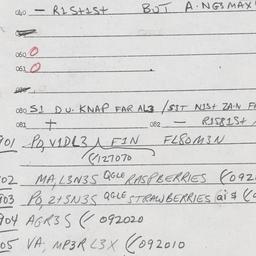 040 — R1St1St BUT A·NGSMAX
060 O
061 O
080 S1 DU·KNAP FAR AL3 /S1T N1St ZA·N F
081 + 082 — R1S81St
901 PO, V1DL3 F1N FL80M3N
(/127070
02 MA, L3N3S QGLE RASPBERRIES (/092
903 PO, 2+SN3S QGLE STRAWBERRIES
904 AGR3S (/ 092020
05 VA, MP3R L3X (/092010